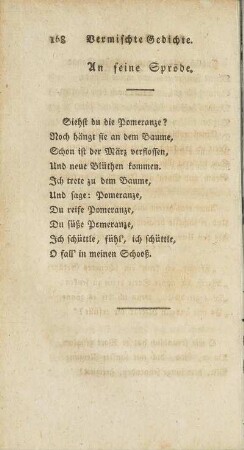 168 Vermischte Gedichte.
An seine Spröde.
Siehst du die Pomeranze?
Noch hängt sie an dem Baume,
Schon ist der März verflossen,
Und neue Blüthen kommen.
Ich trete zu dem Baume,
Und sage: Pomeranze,
Du reife Pomeranze,
Du süße Pomeranze,
Ich schüttle, fühl', ich schüttle,
O fall' in meinen Schooß.